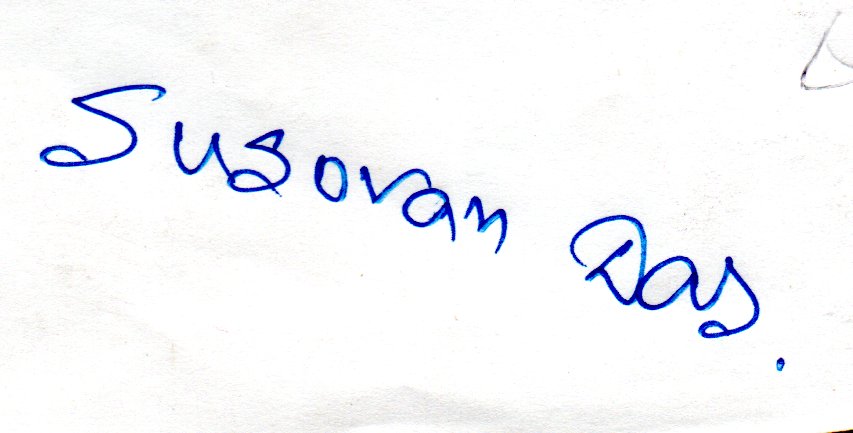 Susovan Das.